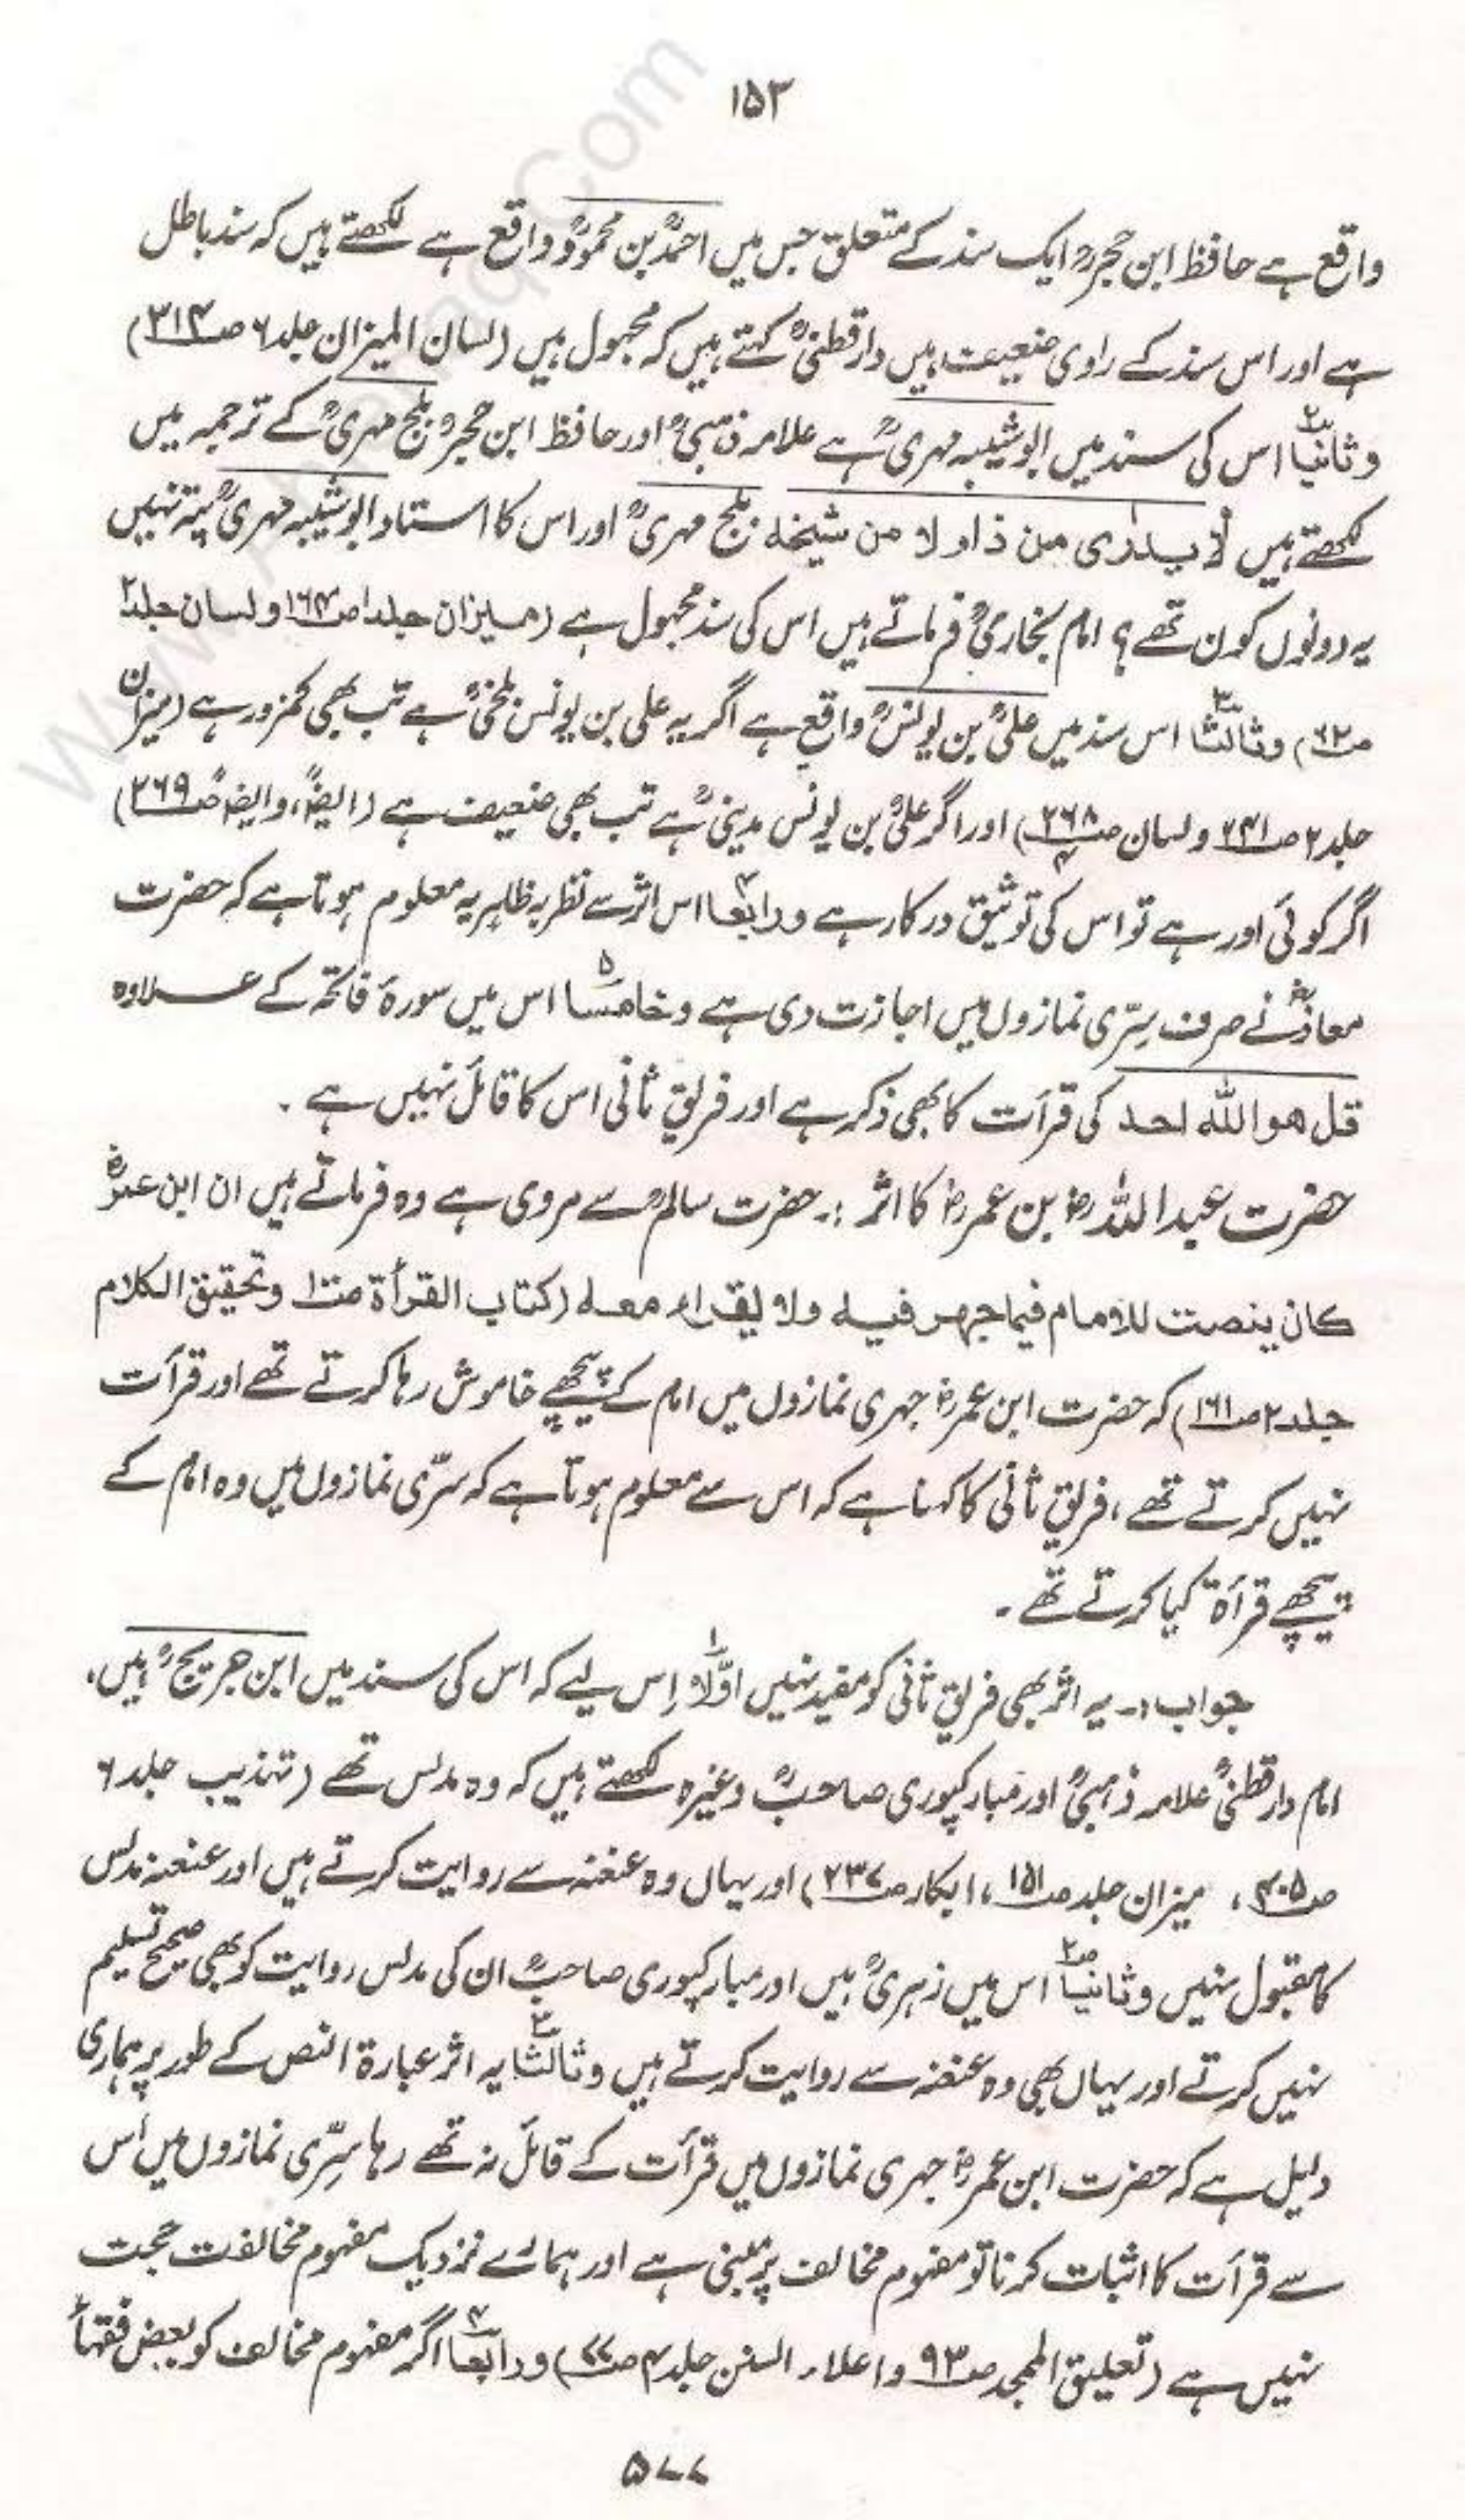 ۱۵۳
واقع ہے حافظ ابن حجرؒ ایک سند کے متعلق جس میں احمدؒ بن محمودؒ واقع ہے لکھتے ہیں کہ سند باطل
ہے اور اس سند کے راوی ضعیف ہیں دارقطنیؒ کہتے ہیں کہ مجہول ہیں (لسان المیزان جلد ۶ ص۳۱۴)
وثانیاً اس کی سند میں ابوشیبہ مہریؒ ہے علامہ ذہبیؒ اور حافظ ابن حجرؒ بلج مہریؒ کے ترجمہ میں
لکھتے ہیں لا یدرٰی من ذا و لا من شیخہ بلج مہریؒ اور اس کا استاد ابوشیبہ مہریؒ پتہ نہیں
یہ دونوں کون تھے؟ امام بخاریؒ فرماتے ہیں اس کی سند مجہول ہے (میزان جلد ۱ ص۱۶۴ و لسان جلد ۲
ص۶۲) وثالثاً اس سند میں علیؒ بن یونسؒ واقع ہے اگر یہ علی بن یونس بلخیؒ ہے تب بھی کمزور ہے (میزان
جلد ۲ ص۲۴۱ و لسان ص۲۶۸ ۴) اور اگر علیؒ بن یونس مدینیؒ ہے تب بھی ضعیف ہے (ایضاً، و ایضاً ص۲۶۹)
اگر کوئی اور ہے تو اس کی توثیق درکار ہے ورابعاً اس اثر سے نظر بہ ظاہر یہ معلوم ہوتا ہے کہ حضرت
معاذؓ نے صرف سِرّی نمازوں میں اجازت دی ہے وخامساً اس میں سورۂ فاتحہ کے علاوہ
قل ھو اللہ احد کی قرأت کا بھی ذکر ہے اور فریقِ ثانی اس کا قائل نہیں ہے ۔
حضرت عبداللہ رضؓ بن عمر رضؓ کا اثر :۔ حضرت سالمؒ سے مروی ہے وہ فرماتے ہیں ان ابن عمرؓ
کان ینصت للامام فیما جہر فیہ ولا یقراء معہ (کتاب القرأۃ ص۱۰۲ وتحقیق الکلام
جلد ۲ ص۱۶۱) کہ حضرت ابن عمرؓ جہری نمازوں میں امام کے پیچھے خاموش رہا کرتے تھے اور قرأت
نہیں کرتے تھے، فریقِ ثانی کا کہنا ہے کہ اس سے معلوم ہوتا ہے کہ سرّی نمازوں میں وہ امام کے
پیچھے قرأۃ کیا کرتے تھے ۔
جواب:۔ یہ اثر بھی فریقِ ثانی کو مفید نہیں اوّلاً اِس لیے کہ اس کی سند میں ابن جریجؒ ہیں،
امام دارقطنیؒ علامہ ذہبیؒ اور مبارکپوری صاحبؒ وغیرہ لکھتے ہیں کہ وہ مدلس تھے (تہذیب جلد ۶
ص۴۰۵، میزان جلد ص۱۵۱، ابکار ص۲۳۷) اور یہاں وہ عنعنہ سے روایت کرتے ہیں اور عنعنہ مدلس
کا مقبول نہیں وثانیاً اس میں زہریؒ ہیں اور مبارکپوری صاحبؒ ان کی مدلس روایت کو بھی صحیح تسلیم
نہیں کرتے اور یہاں بھی وہ عنعنہ سے روایت کرتے ہیں وثالثاً یہ اثر عبارۃ النص کے طور پر ہماری
دلیل ہے کہ حضرت ابن عمرؓ جہری نمازوں میں قرأت کے قائل نہ تھے رہا سِرّی نمازوں میں اُس
سے قرأت کا اثبات کرنا تو مفہوم مخالف پر مبنی ہے اور ہمارے نزدیک مفہوم مخالفت حجت
نہیں ہے (تعلیق الممجد ص۹۳ و اعلاء السنن جلد ۴ ص۷۷) ورابعاً اگر مفہوم مخالف کو بعض فقہاؒ
۵۷۷